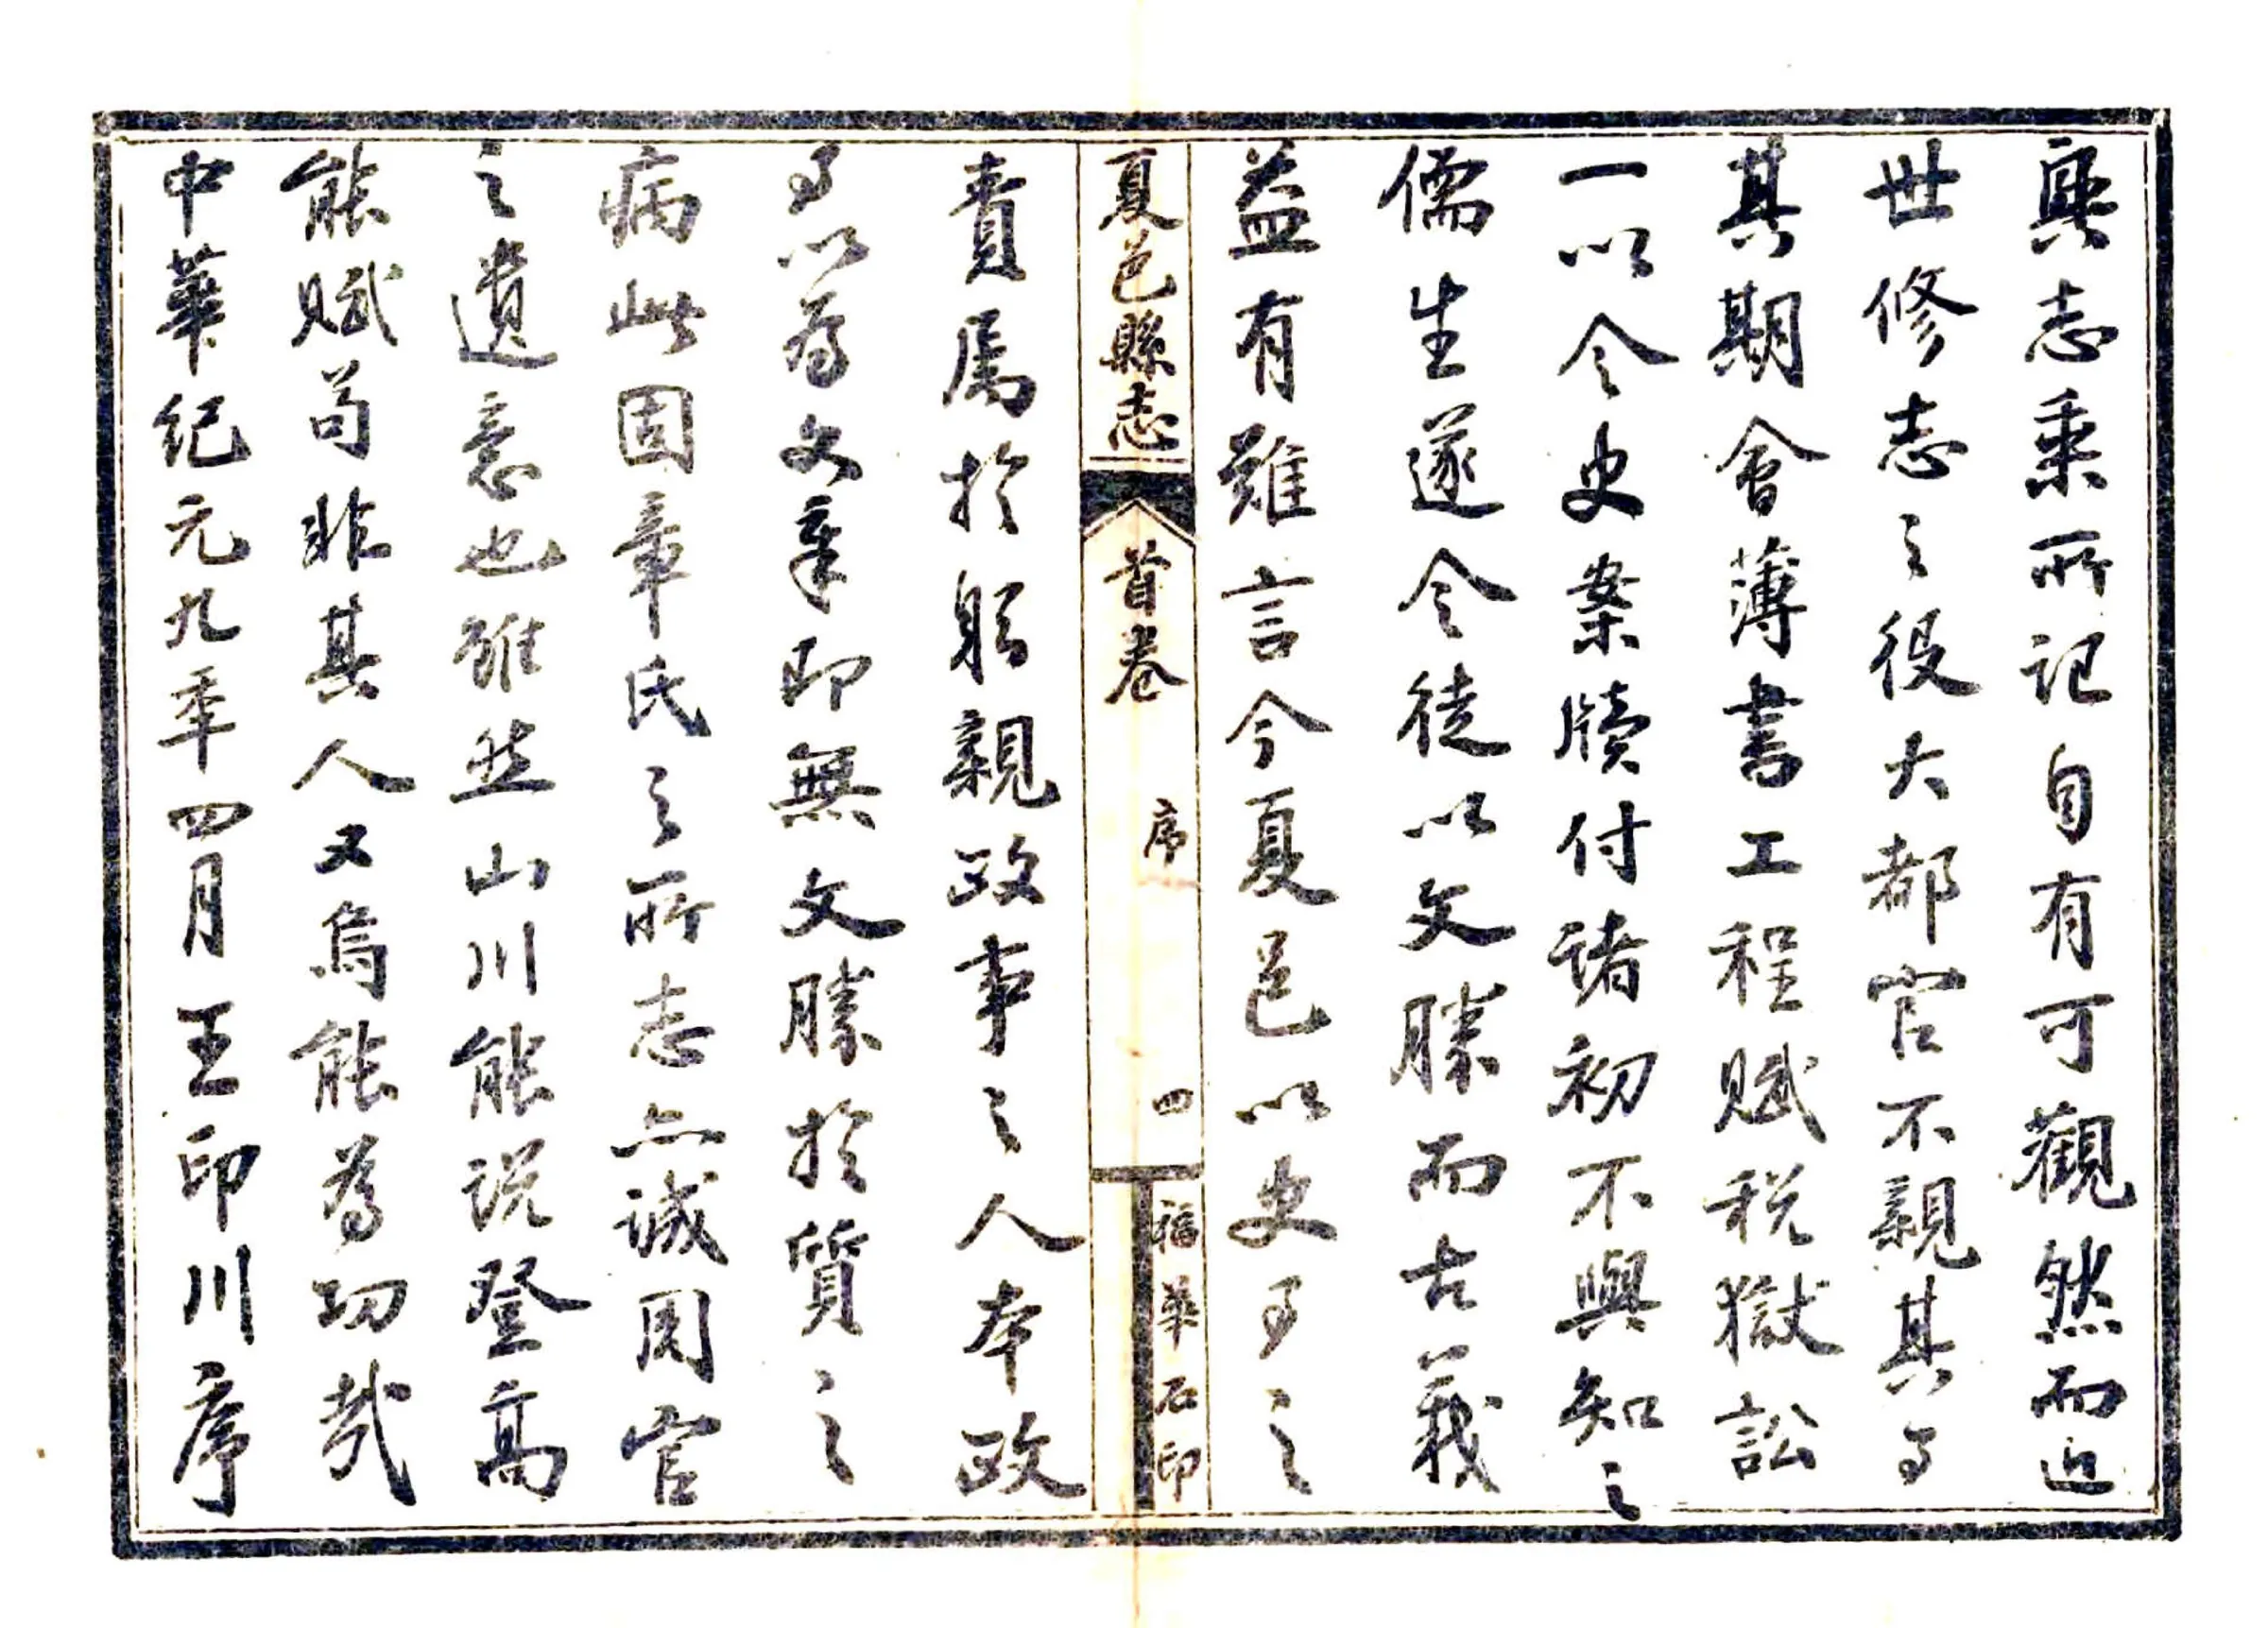 輿志乘所記自有可觀然而近
世修志之役大都官不親其事
其期會薄書工程賦稅獄訟
一以令史案牘付諸初不與知之
儒生遂令徒以文勝而古義
益有難言今夏邑以史事之
夏邑縣志 首卷 序 四 福華石印
責屬於躬親政事之人本政
事以為文章即無文勝於質之
病此固章氏之所志亦誠周官
之遺意也雖然山川能說登高
能賦苟非其人又烏能為功哉
中華紀元九年四月王印川序